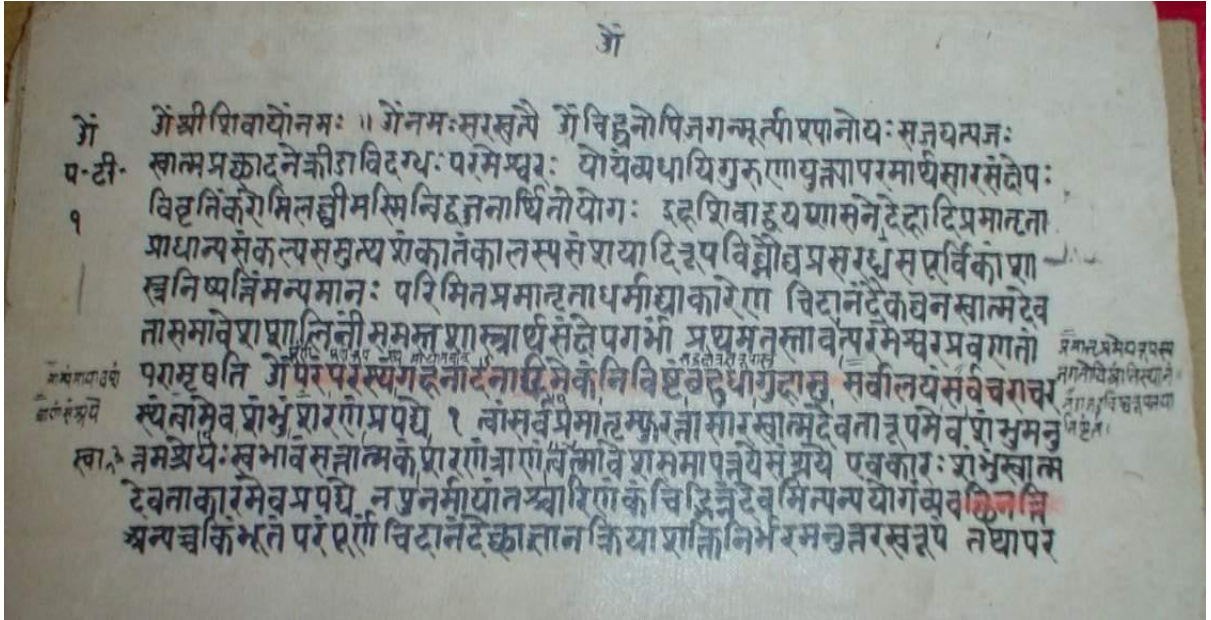 ॐ
ॐ श्रीशिवायोंनमः ॥ ॐनमःसरस्वत्यै ॐ चिद्घनोपिजगन्मूर्त्याश्यानोयःसजयत्यजः
प॰टी॰ स्वात्मप्रच्छादनक्रीडाविदग्धः परमेश्वरः योयंव्यधायिगुरुणायुक्त्यापरमार्थसारसंक्षेपः
१ विवृतिंकरोमिलघ्वीमस्मिन्विद्वज्जनार्थितोयोगः इहशिवाद्वयशासनेदेहादिप्रमातृता
प्राधान्यसंकल्पसमुत्थशंकातंकालस्यसंशयादिरूपविघ्नौघप्रसरध्वंसपूर्विकांशा
स्त्रनिष्पत्तिंमन्यमानः परिमितप्रमातृताधर्माद्याकारेण चिदानंदैकघनस्वात्मदेव
तासमावेशशालिनीं समस्तशास्त्रार्थसंक्षेपगर्भां प्रथमतस्तावत्परमेश्वरप्रवणतां
परामृषति ॐ परंपरस्थंगहनादनादिमेकंनिविष्टंबहुधागुहासु सर्वालयंसर्वचराचर
स्थंत्वामेवशंभुंशरणंप्रपद्ये १ त्वांसर्वप्रमातृस्फुरत्तासारंस्वात्मदेवतारूपमेवशंभुमनु
त्तमश्रेयःस्वभावंसत्तात्मकंशरणंत्राणंत्वत्समावेशसमापत्तयेसंश्रये एवकारः शंभुंस्वात्म
देवताकारमेवप्रपद्ये नपुनर्मायांतश्चारिणंकंचिद्भिन्नंदेवमित्यन्ययोगंव्यवच्छिनत्ति
अन्यच्चकिंभूतं परंपूर्णं चिदानंदेच्छाज्ञानक्रियाशक्तिनिर्भरमनुत्तरस्वरूपं तथापर